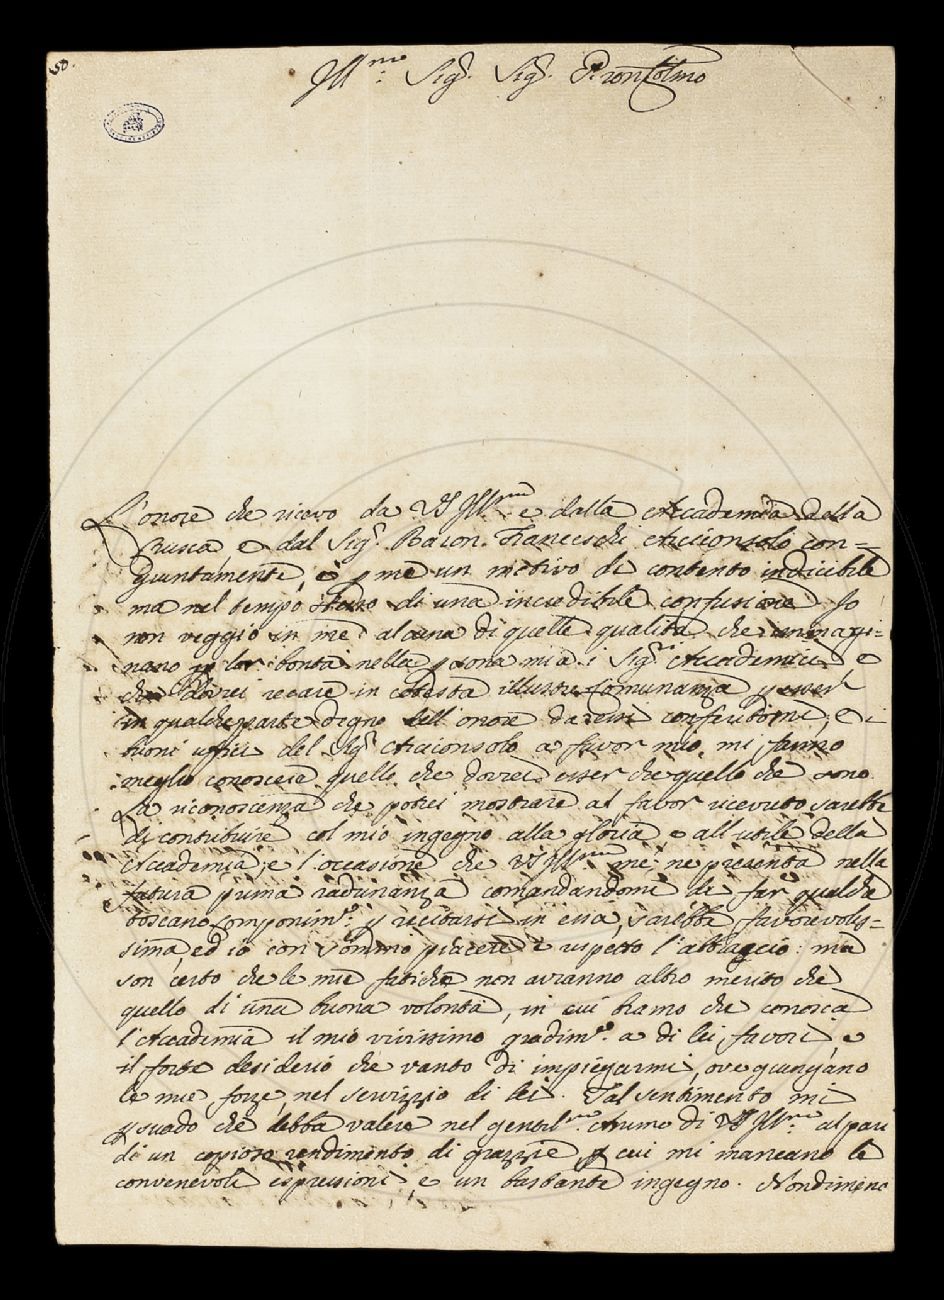 50.
Ill.mo Sig.r Sig.r P.ron Col.mo
L'onore che ricevo da VS Ill.ma e dalla Accademia della
Crusca, e dal Sig.r Baron. Franceschi Arciconsolo con=
giuntamente, è p me un motivo di contento indicibile
ma nel tempo stesso di una incredibile confusione. Io
non veggio in me alcuna di quelle qualità che immagi-
nano p lor bontà nella psona mia i Sig.ri Accademici e
che dovrei recare in cotesta illustre comunanza p esser
in qualche parte degno dell'onore da essi conferitomi, e i
buoni uffici del Sig.r Arciconsolo a favor mio, mi fanno
meglio conoscere quello che dovrei esser che quello che sono.
La riconoscenza che potrei mostrare al favor ricevuto sarebbe
di contribuire col mio ingegno alla gloria e all'utile della
Accademia, e l'occasione che VS Ill.ma me ne presenta nella
futura prima radunanza comandandomi di far qualche
toscano componim.to p recitarsi in essa, sarebbe favorevolis-
sima, ed io con sommo piacere e rispetto l'abbraccio: ma
son certo che le mie fatiche non avranno altro merito che
quello di una buona volontà, in cui bramo che conosca
l'Accademia il mio vivissimo gradim.to a di lei favori, e
il forte desiderio che vanto di impiegarmi, ove giungano
le mie forze, nel servizzio di lei. Tal sentimento mi
psuado che debba valere nel gentil.mo animo di VS Ill.ma al pari
di un copioso rendimento di grazzie, p cui mi mancano le
convenevoli espressioni, e un bastante ingegno. Nondimeno